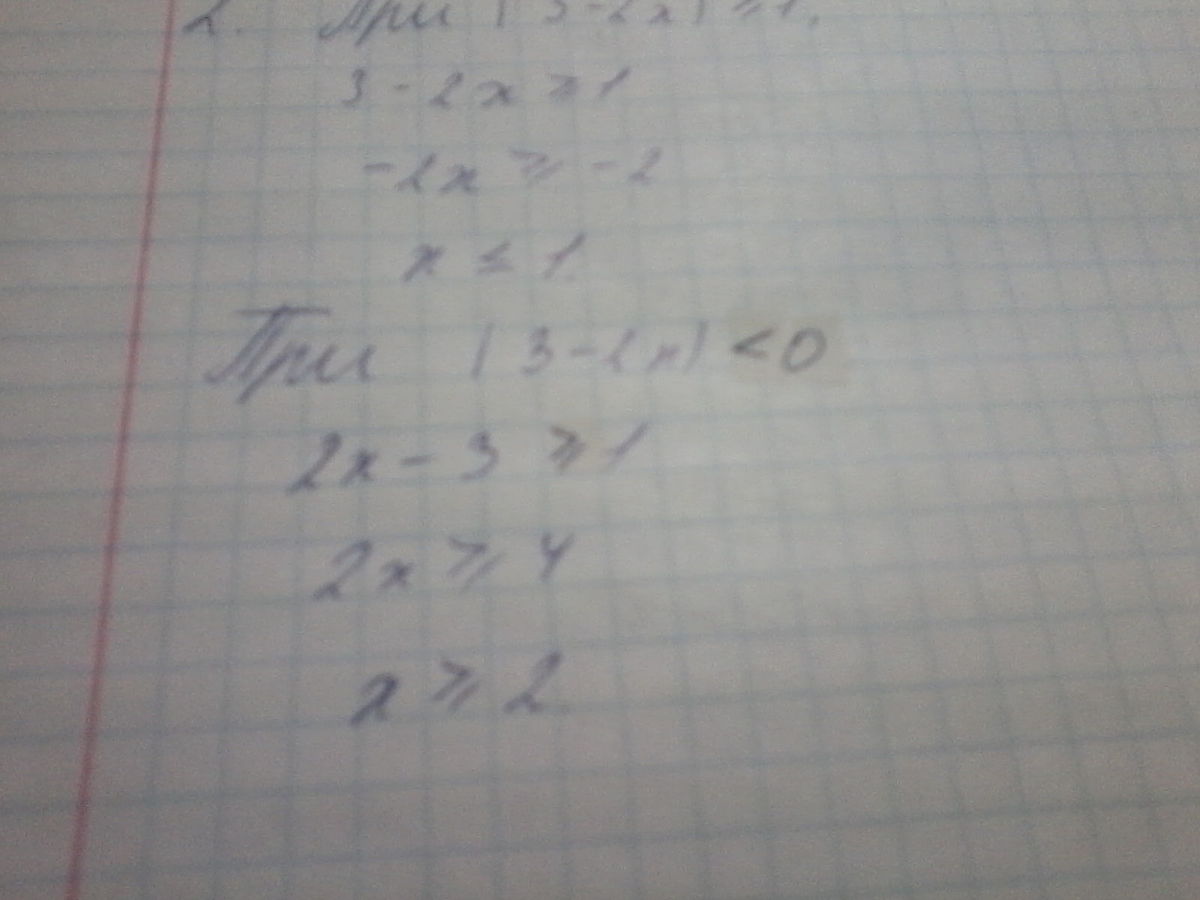 2. При |3-2x| ≥ 1.
3 - 2x ≥ 1
-2x ≥ -2
x ≤ 1
При |3-2x| < 0
2x - 3 ≥ 1
2x ≥ 4
x ≥ 2